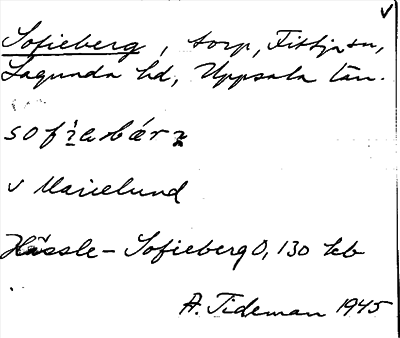 Sofieberg, torp, Fittja sn,
Lagunda hd, Uppsala län.
v Marielund
Hässle-Sofieberg 0,130 kb
A. Tideman 1945